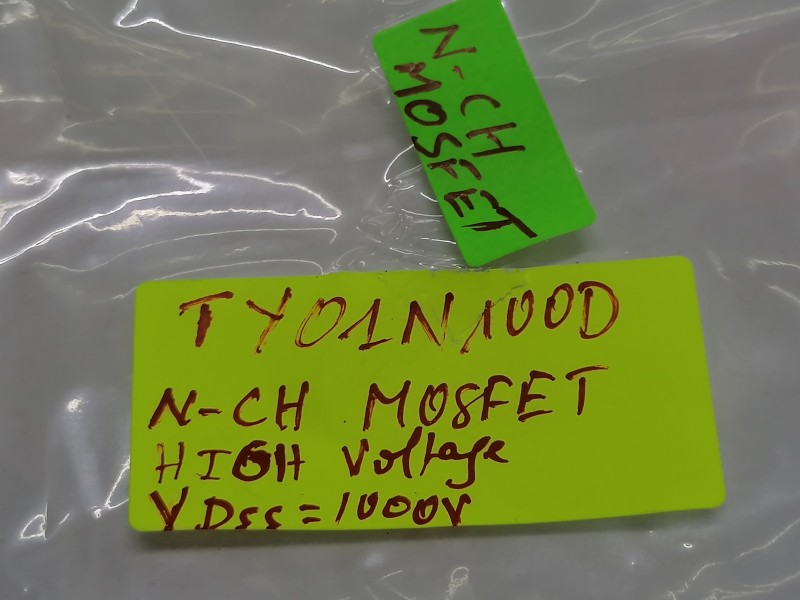 N-CH
MOSFET
TY01N100D
N-CH MOSFET
HIGH Voltage
VDSS = 1000V